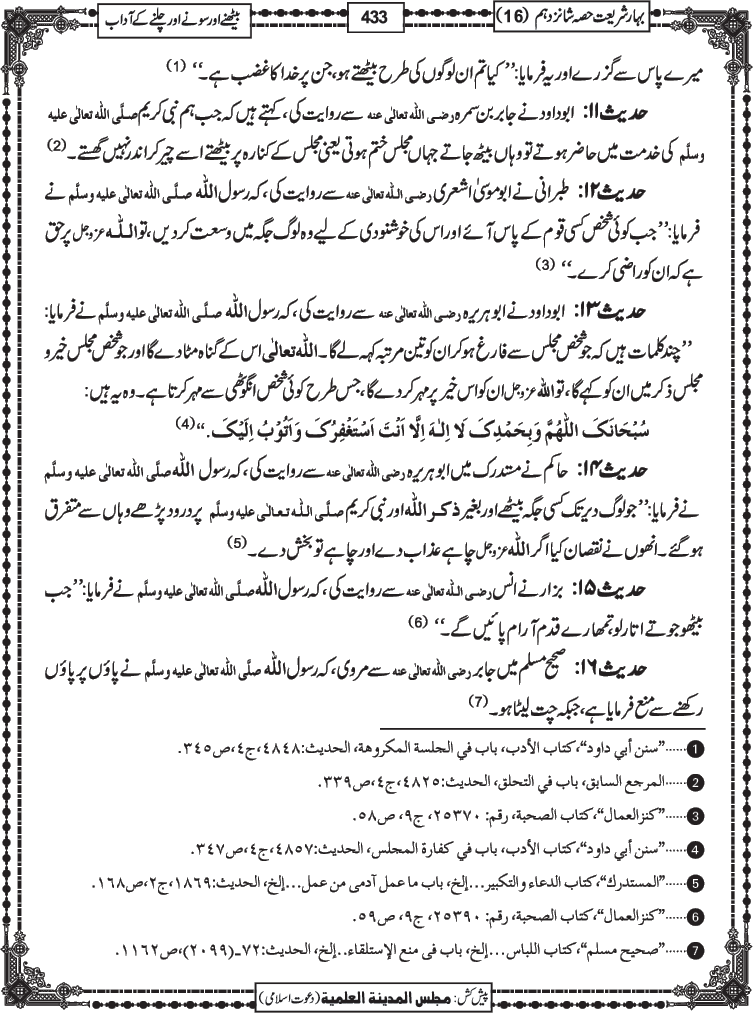 بہار شریعت حصہ شانزدہم (16)
433
بیٹھنے اور سونے اور چلنے کے آداب
میرے پاس سے گزرے اور یہ فرمایا: ’’کیا تم ان لوگوں کی طرح بیٹھتے ہو، جن پر خدا کا غضب ہے۔‘‘ (1)
حدیث ۱۱: ابوداود نے جابر بن سمرہ رضی اللہ تعالیٰ عنہ سے روایت کی، کہتے ہیں کہ جب ہم نبی کریم صلَّی اللہ تعالٰی علیہ
وسلَّم کی خدمت میں حاضر ہوتے تو وہاں بیٹھ جاتے جہاں مجلس ختم ہوتی یعنی مجلس کے کنارہ پر بیٹھتے اسے چیر کر اندر نہیں گھستے۔ (2)
حدیث ۱۲: طبرانی نے ابوموسیٰ اشعری رضی اللہ تعالیٰ عنہ سے روایت کی، کہ رسول اللہ صلَّی اللہ تعالٰی علیہ وسلَّم نے
فرمایا: ’’جب کوئی شخص کسی قوم کے پاس آئے اور اس کی خوشنودی کے لیے وہ لوگ جگہ میں وسعت کردیں، تو اللہ عزوجل پر حق
ہے کہ ان کو راضی کرے۔‘‘ (3)
حدیث ۱۳: ابوداود نے ابوہریرہ رضی اللہ تعالیٰ عنہ سے روایت کی، کہ رسول اللہ صلَّی اللہ تعالٰی علیہ وسلَّم نے فرمایا:
’’چند کلمات ہیں کہ جو شخص مجلس سے فارغ ہو کر ان کو تین مرتبہ کہہ لے گا۔ اللہ تعالیٰ اس کے گناہ مٹادے گا اور جو شخص مجلس خیر و
مجلس ذکر میں ان کو کہے گا، تو اللہ عزوجل ان کو اس خیر پر مہر کردے گا، جس طرح کوئی شخص انگوٹھی سے مہر کرتا ہے۔ وہ یہ ہیں:
سُبْحَانَکَ اللّٰھُمَّ وَبِحَمْدِکَ لَا اِلٰہَ اِلَّا اَنْتَ اَسْتَغْفِرُکَ وَاَتُوْبُ اِلَیْکَ.‘‘ (4)
حدیث ۱۴: حاکم نے مستدرک میں ابوہریرہ رضی اللہ تعالیٰ عنہ سے روایت کی، کہ رسول اللہ صلَّی اللہ تعالٰی علیہ وسلَّم
نے فرمایا: ’’جو لوگ دیر تک کسی جگہ بیٹھے اور بغیر ذکر اللہ اور نبی کریم صلَّی اللہ تعالٰی علیہ وسلَّم پر درود پڑھے وہاں سے متفرق
ہوگئے۔ انھوں نے نقصان کیا اگر اللہ عزوجل چاہے عذاب دے اور چاہے تو بخش دے۔ (5)
حدیث ۱۵: بزار نے انس رضی اللہ تعالیٰ عنہ سے روایت کی، کہ رسول اللہ صلَّی اللہ تعالٰی علیہ وسلَّم نے فرمایا: ’’جب
بیٹھو جوتے اتار لو، تمھارے قدم آرام پائیں گے۔‘‘ (6)
حدیث ۱۶: صحیح مسلم میں جابر رضی اللہ تعالیٰ عنہ سے مروی، کہ رسول اللہ صلَّی اللہ تعالٰی علیہ وسلَّم نے پاؤں پر پاؤں
رکھنے سے منع فرمایا ہے، جبکہ چت لیٹا ہو۔ (7)
1 ......”سنن أبي داود“، کتاب الأدب، باب في الجلسة المکروهة، الحدیث:٤٨٤٨، ج٤، ص٣٤٥.
2 ......المرجع السابق، باب في التحلق، الحدیث:٤٨٢٥، ج٤، ص٣٣٩.
3 ......”کنزالعمال“، کتاب الصحبة، رقم: ٢٥٣٧٠، ج٩، ص٥٨.
4 ......”سنن أبي داود“، کتاب الأدب، باب في کفارة المجلس، الحدیث:٤٨٥٧، ج٤، ص٣٤٧.
5 ......”المستدرك“، کتاب الدعاء والتکبیر...إلخ، باب ما عمل آدمی من عمل...إلخ، الحدیث:١٨٦٩، ج٢، ص١٦٨.
6 ......”کنزالعمال“، کتاب الصحبة، رقم: ٢٥٣٩٠، ج٩، ص٥٩.
7 ......”صحیح مسلم“، کتاب اللباس...إلخ، باب فی منع الإستلقاء..إلخ، الحدیث:٧٢ـ(٢٠٩٩)، ص١١٦٢.
پیش کش: مجلس المدینة العلمیة (دعوت اسلامی)